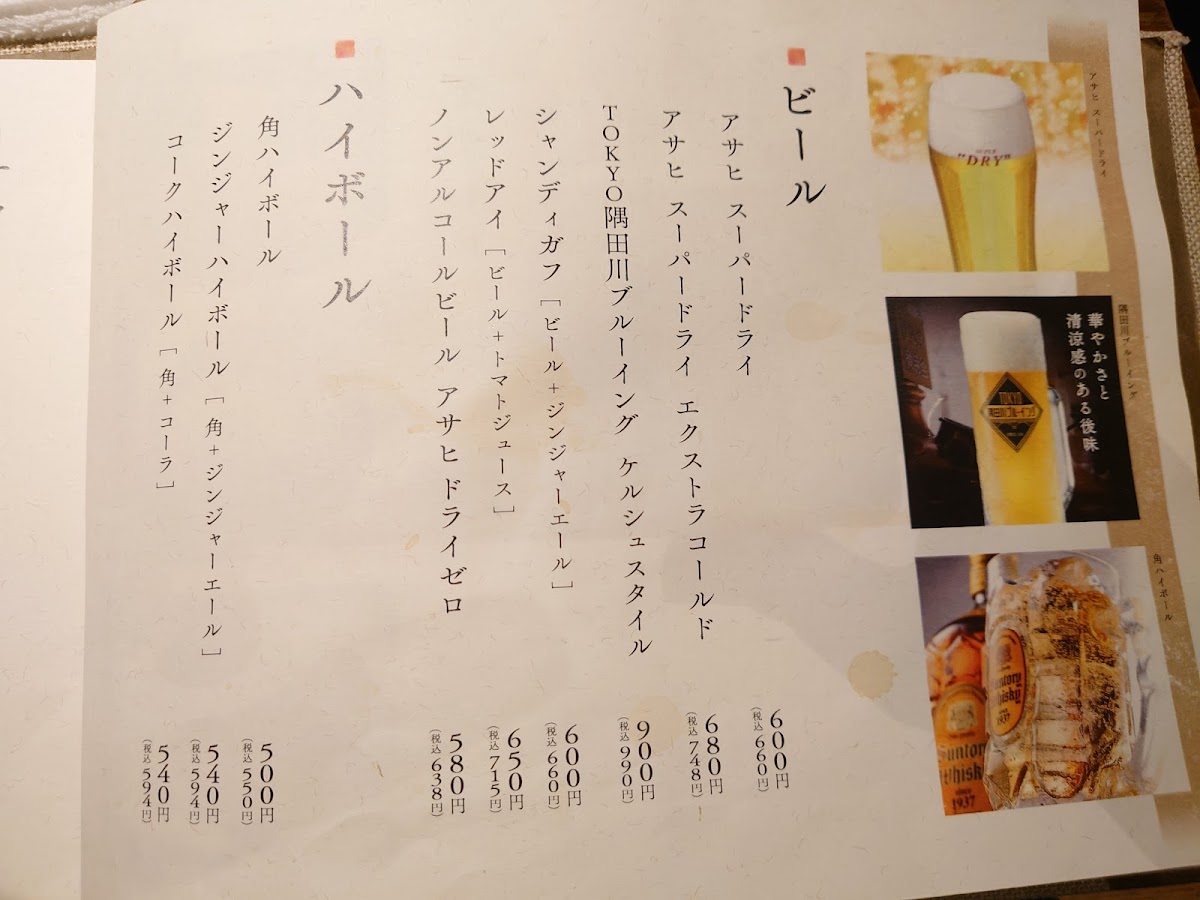 アサヒ スーパードライ
SUPER
"DRY"
隅田川ブルーイング
華やかさと
清涼感のある後味
TOKYO
隅田川ブルーイング
角ハイボール
Suntory
Whisky
since
1937
Suntory
Whisky
since
1937
ビール
アサヒ スーパードライ 600円(税込660円)
アサヒ スーパードライ エクストラコールド 680円(税込748円)
TOKYO隅田川ブルーイング ケルシュスタイル 900円(税込990円)
シャンディガフ[ビール+ジンジャーエール] 600円(税込660円)
レッドアイ[ビール+トマトジュース] 650円(税込715円)
ノンアルコールビール アサヒ ドライゼロ 580円(税込638円)
ハイボール
角ハイボール 500円(税込550円)
ジンジャーハイボール[角+ジンジャーエール] 540円(税込594円)
コークハイボール[角+コーラ] 540円(税込594円)